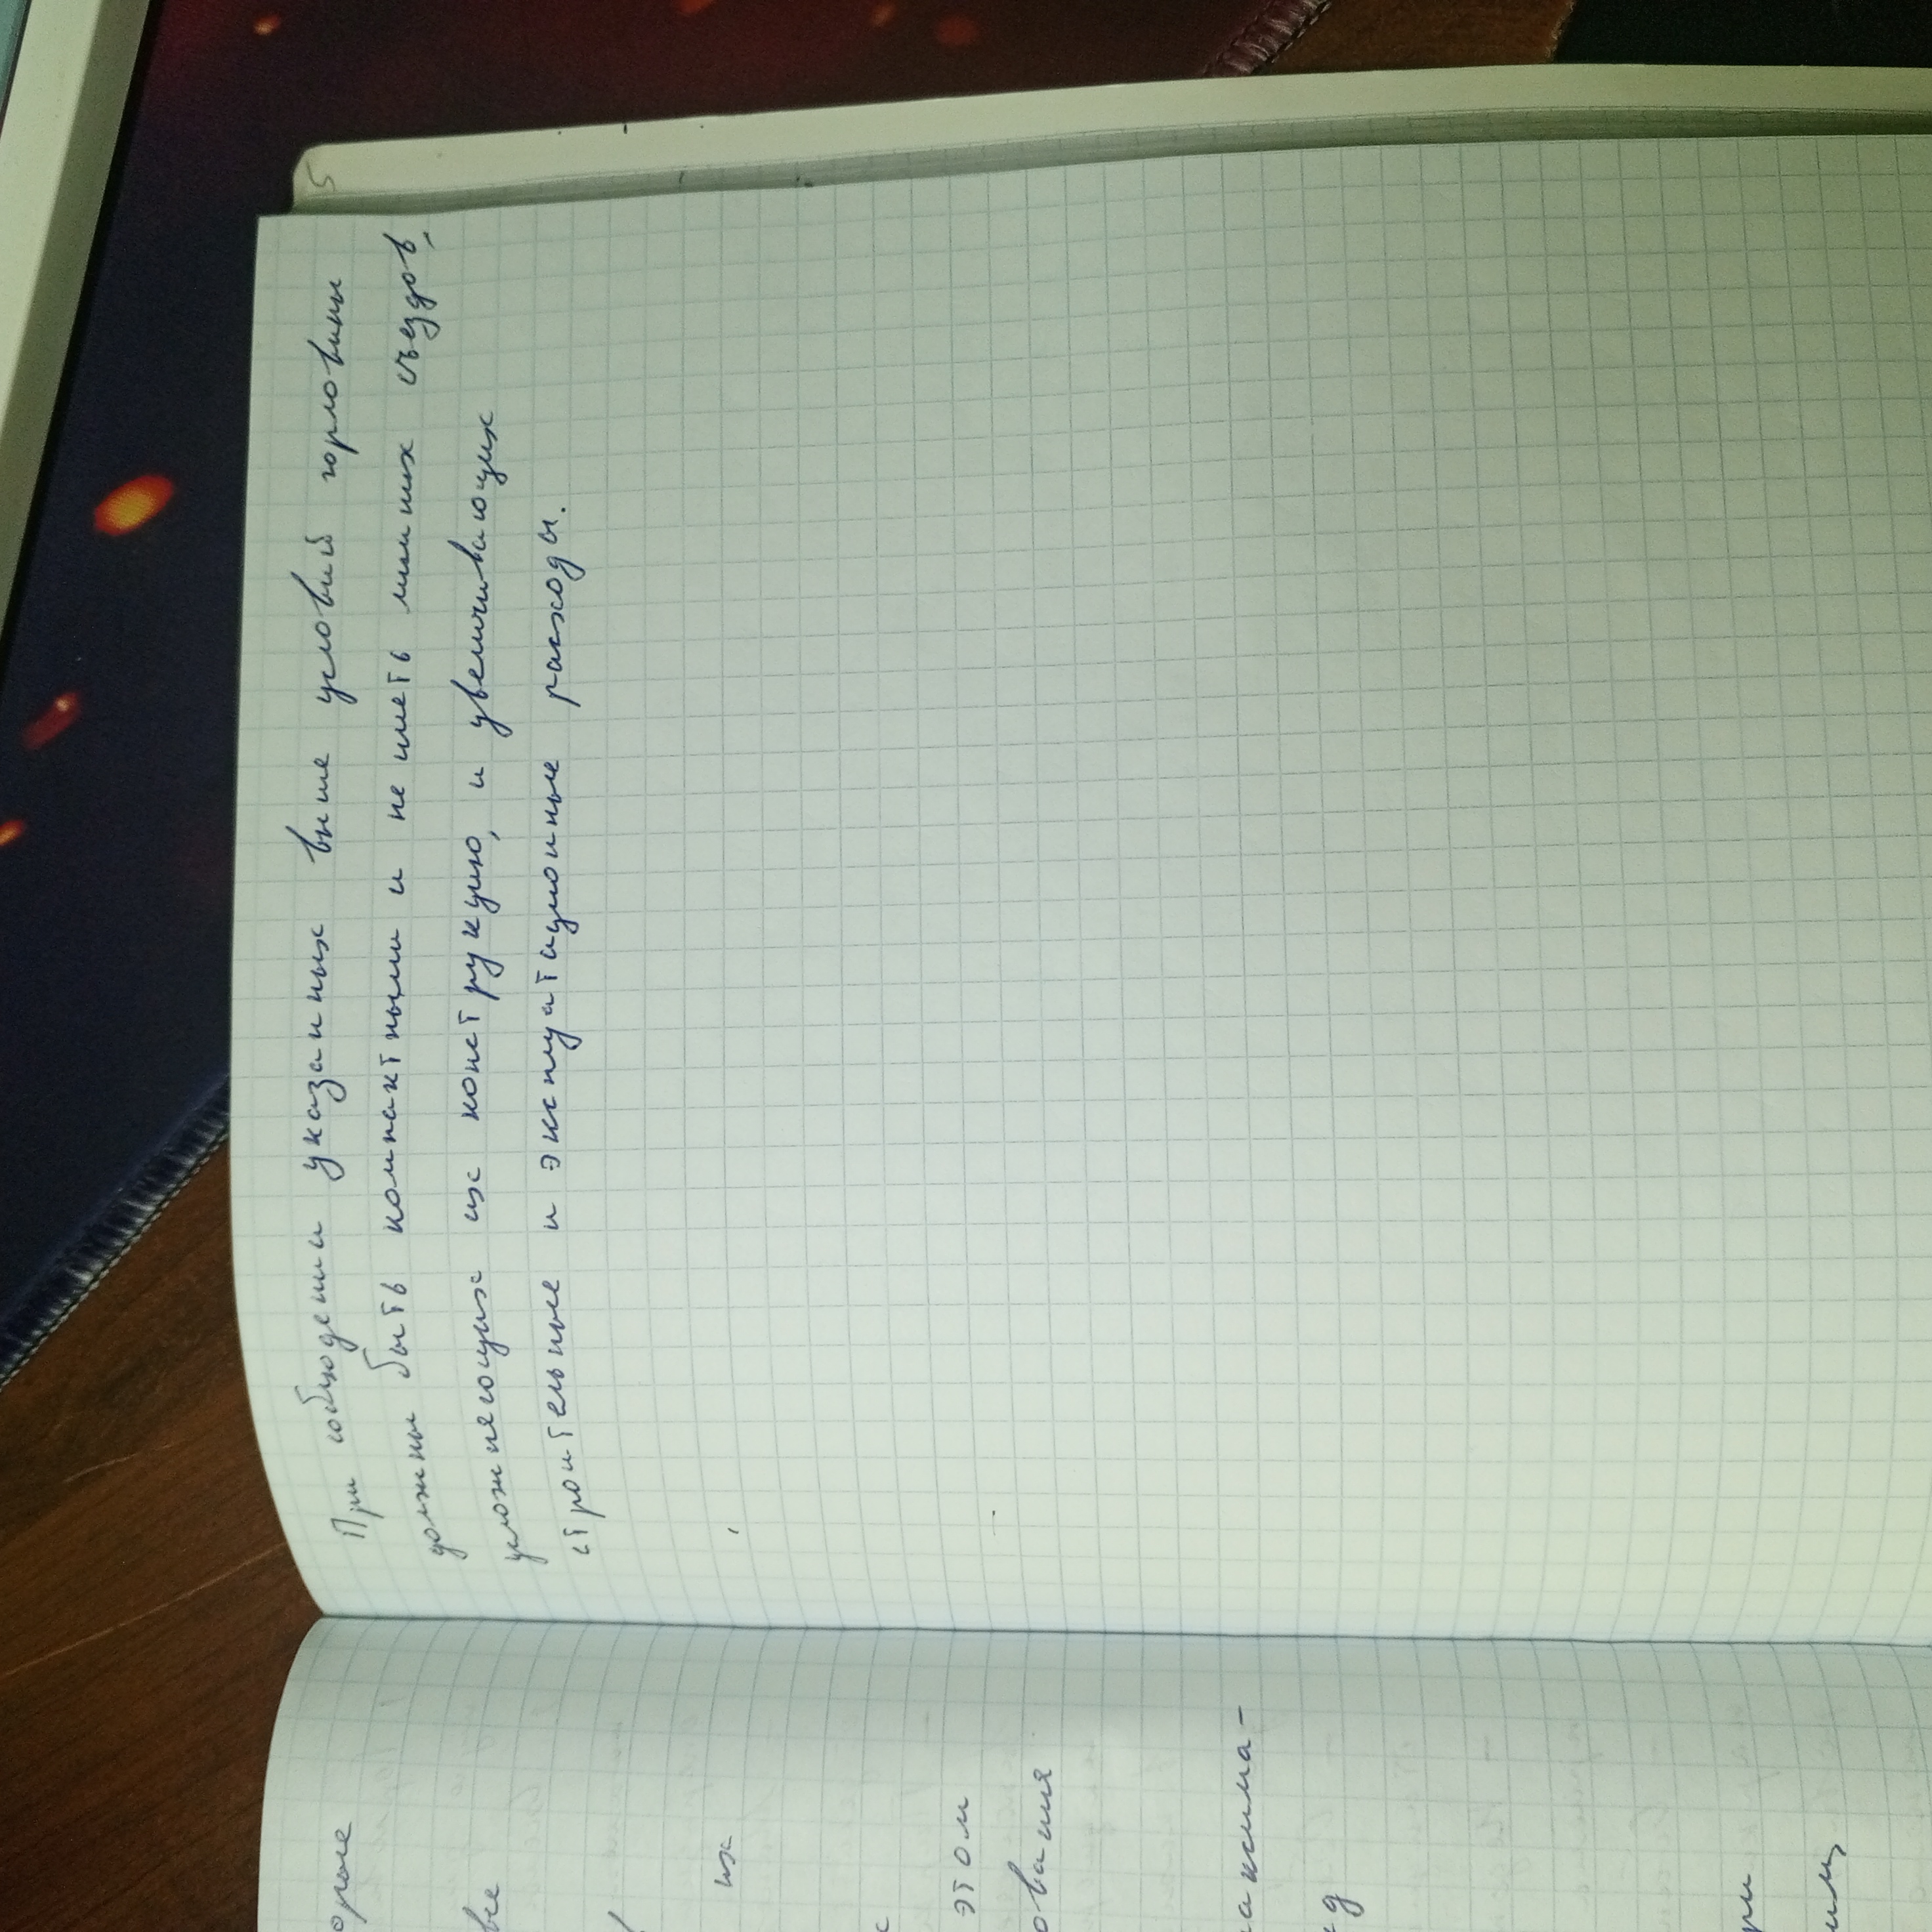 При соблюдении указанных выше условий горловины
должны быть компактными и не иметь лишних съездов,
усложняющих их конструкцию, и увеличивающих
строительные и эксплуатационные расходы.
их
этом